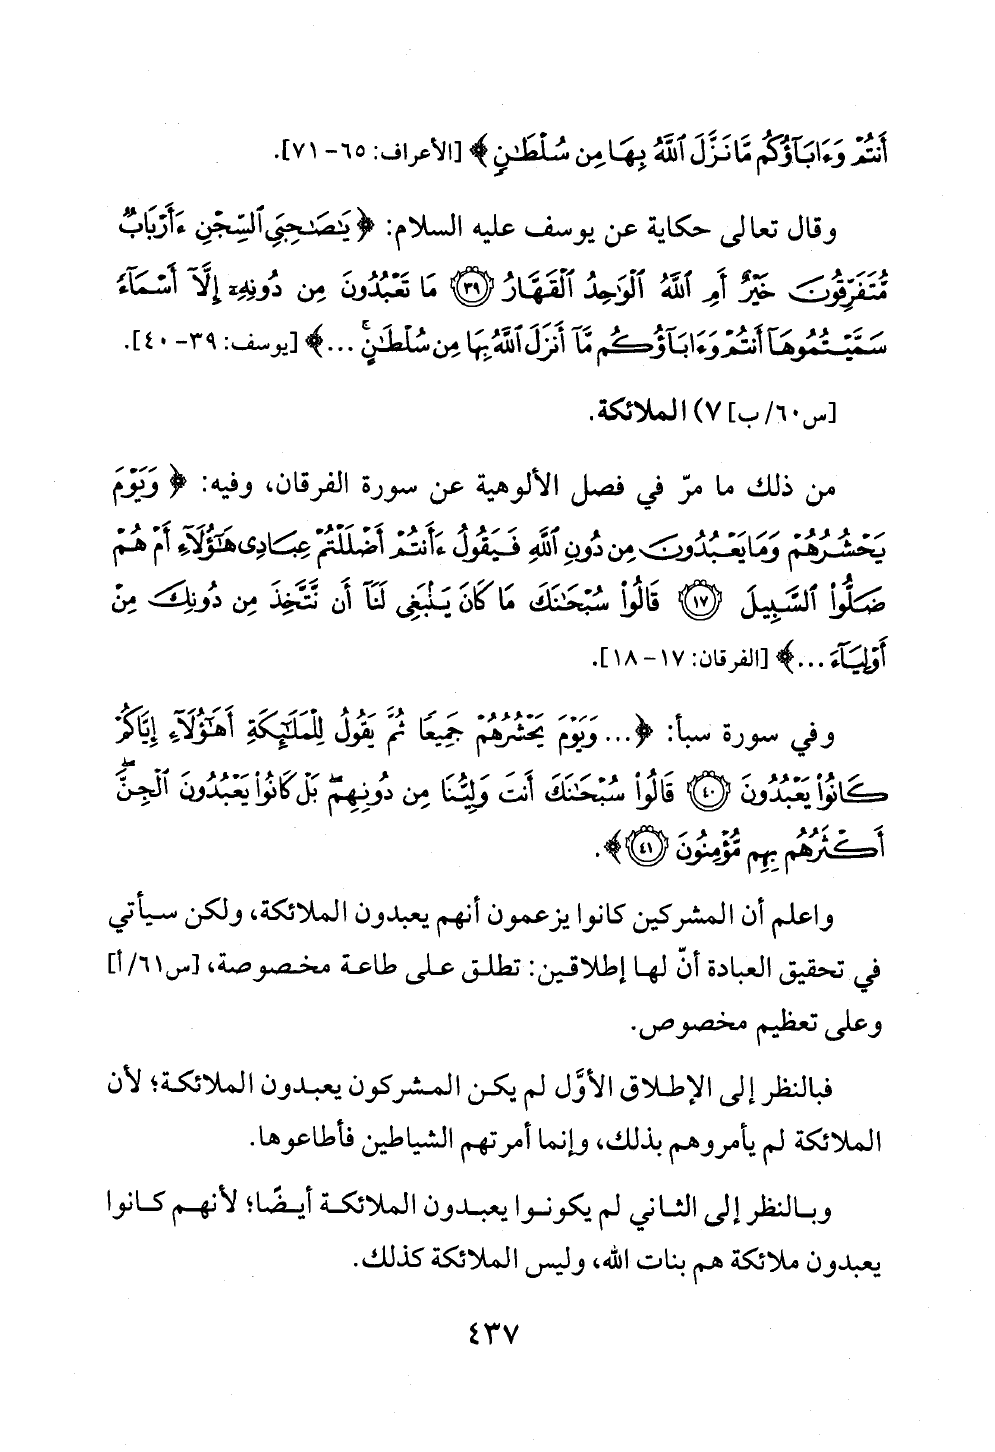 أَنتُمْ وَءَابَآؤُكُم مَّا نَزَّلَ ٱللَّهُ بِهَا مِن سُلْطَٰنٍ﴾ [الأعراف: ٦٥-٧١].
وقال تعالى حكاية عن يوسف عليه السلام: ﴿يَٰصَٰحِبَىِ ٱلسِّجْنِ ءَأَرْبَابٌ
مُّتَفَرِّقُونَ خَيْرٌ أَمِ ٱللَّهُ ٱلْوَٰحِدُ ٱلْقَهَّارُ ۝٣٩ مَا تَعْبُدُونَ مِن دُونِهِۦٓ إِلَّآ أَسْمَآءً
سَمَّيْتُمُوهَآ أَنتُمْ وَءَابَآؤُكُم مَّآ أَنزَلَ ٱللَّهُ بِهَا مِن سُلْطَٰنٍۚ ...﴾ [يوسف: ٣٩-٤٠].
[س٦٠/ب] ٧) الملائكة.
من ذلك ما مرّ في فصل الألوهية عن سورة الفرقان، وفيه: ﴿وَيَوْمَ
يَحْشُرُهُمْ وَمَا يَعْبُدُونَ مِن دُونِ ٱللَّهِ فَيَقُولُ ءَأَنتُمْ أَضْلَلْتُمْ عِبَادِى هَٰٓؤُلَآءِ أَمْ هُمْ
ضَلُّوا۟ ٱلسَّبِيلَ ۝١٧ قَالُوا۟ سُبْحَٰنَكَ مَا كَانَ يَنۢبَغِى لَنَآ أَن نَّتَّخِذَ مِن دُونِكَ مِنْ
أَوْلِيَآءَ ...﴾ [الفرقان: ١٧-١٨].
وفي سورة سبأ: ﴿... وَيَوْمَ يَحْشُرُهُمْ جَمِيعًا ثُمَّ يَقُولُ لِلْمَلَٰٓئِكَةِ أَهَٰٓؤُلَآءِ إِيَّاكُمْ
كَانُوا۟ يَعْبُدُونَ ۝٤٠ قَالُوا۟ سُبْحَٰنَكَ أَنتَ وَلِيُّنَا مِن دُونِهِم ۖ بَلْ كَانُوا۟ يَعْبُدُونَ ٱلْجِنَّ ۖ
أَكْثَرُهُم بِهِم مُّؤْمِنُونَ ۝٤١﴾.
واعلم أن المشركين كانوا يزعمون أنهم يعبدون الملائكة، ولكن سيأتي
في تحقيق العبادة أنّ لها إطلاقين: تطلق على طاعة مخصوصة، [س٦١/أ]
وعلى تعظيم مخصوص.
فبالنظر إلى الإطلاق الأوَّل لم يكن المشركون يعبدون الملائكة؛ لأن
الملائكة لم يأمروهم بذلك، وإنما أمرتهم الشياطين فأطاعوها.
وبالنظر إلى الثاني لم يكونوا يعبدون الملائكة أيضًا؛ لأنهم كانوا
يعبدون ملائكة هم بنات الله، وليس الملائكة كذلك.
٤٣٧